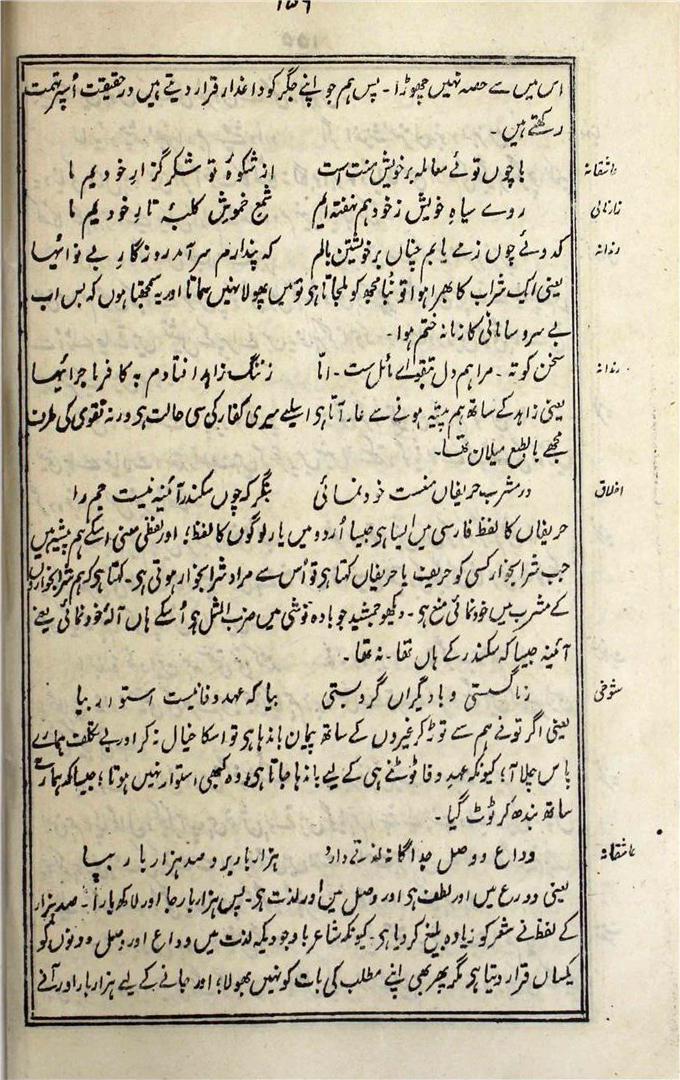 ۱۵۶
اس میں سے حصہ نہیں چھوڑا ۔ پس ہم جو اپنے جگر کو داغدار قرار دیتے ہیں درحقیقت اُسپر تہمت
رکھتے ہیں ۔
عاشقانہ با چوں توئے معاملہ بر خویش منت است از شکوۂ تو شکر گزارِ خودیم ما
نازنالی روے سیاہِ خویش ز خود ہم نہفتہ ایم شمع خموش کلبۂ تارِ خودیم ما
رندانہ کدوئے چوں زمے یابم چناں بر خویشتن بالم کہ پندارم سرآمد روزگارِ بے نوائیہا
یعنی ایک شراب کا بھرا ہوا تو نبا مجھ کو ملجاتا ہی تو میں پھولا نہیں سماتا اور یہ سمجھتا ہوں کہ بس اب
بے سر و سامانی کا زمانہ ختم ہوا ۔
رندانہ سخن کوتہ ۔ مرا ہم دل بتقوےٰ مائل ست ۔ امّا ز ننگِ زاہد افتادم بہ کافر ماجرائیہا
یعنی زاہد کے ساتھ ہم پیشہ ہونے سے عار آتا ہی اسلیے میری کفار کی سی حالت ہی ورنہ تقوی کی طرف
مجھے بالطبع میلان تھا ۔
اخلاق در مشربِ حریفاں منعست خود نمائی بنگر کہ چوں سکندر آئینہ نیست جم را
حریفاں کا لفظ فارسی میں ایسا ہی جیسا اُردو میں یار لوگوں کا لفظ ؛ اور لفظی معنی اسکے ہم پیشہ ہیں
جب شرابخوار کسی کو حریف یا حریفاں کہتا ہی تو اُس سے مراد شرابخوار ہوتی ہی ۔ کہتا ہی کہ ہم شرابخواروں
کے مشرب میں خود نمائی منع ہی ۔ دیکھو جمشید جو بادہ نوشی میں ضرب المثل ہی اُسکے ہاں آلۂ خود نمائی یعنے
آئینہ جیسا کہ سکندر کے ہاں تھا ۔ نہ تھا ۔
شوخی ز ما گسستی و با دیگراں گرو بستی بیا کہ عہدِ وفا نیست استوار بیا
یعنی اگر تو نے ہم سے توڑ کر غیروں کے ساتھ پیمان باندھا ہی تو اسکا خیال نہ کر اور بے تکلف ہمارے
پاس چلا آ ؛ کیونکہ عہدِ وفا ٹوٹنے ہی کے لیے باندھا جاتا ہی وہ کبھی استوار نہیں ہوتا ؛ جیسا کہ ہمارے
ساتھ بندھ کر ٹوٹ گیا ۔
عاشقانہ وداع و وصل جداگانہ لذتے دارد ہزار بار برو صد ہزار بار بیا
یعنی وداع میں اور لطف ہی اور وصل میں اور لذت ہی ۔ پس ہزار بار جا اور لاکھ بار آ ۔ صد ہزار
کے لفظ نے شعر کو زیادہ بلیغ کر دیا ہی ۔ کیونکہ شاعر باوجودیکہ لذت میں وداع اور وصل دونوں کو
یکساں قرار دیتا ہی مگر پھر بھی اپنے مطلب کی بات کو نہیں بھولا ؛ اور جانے کے لیے ہزار بار اور آنے